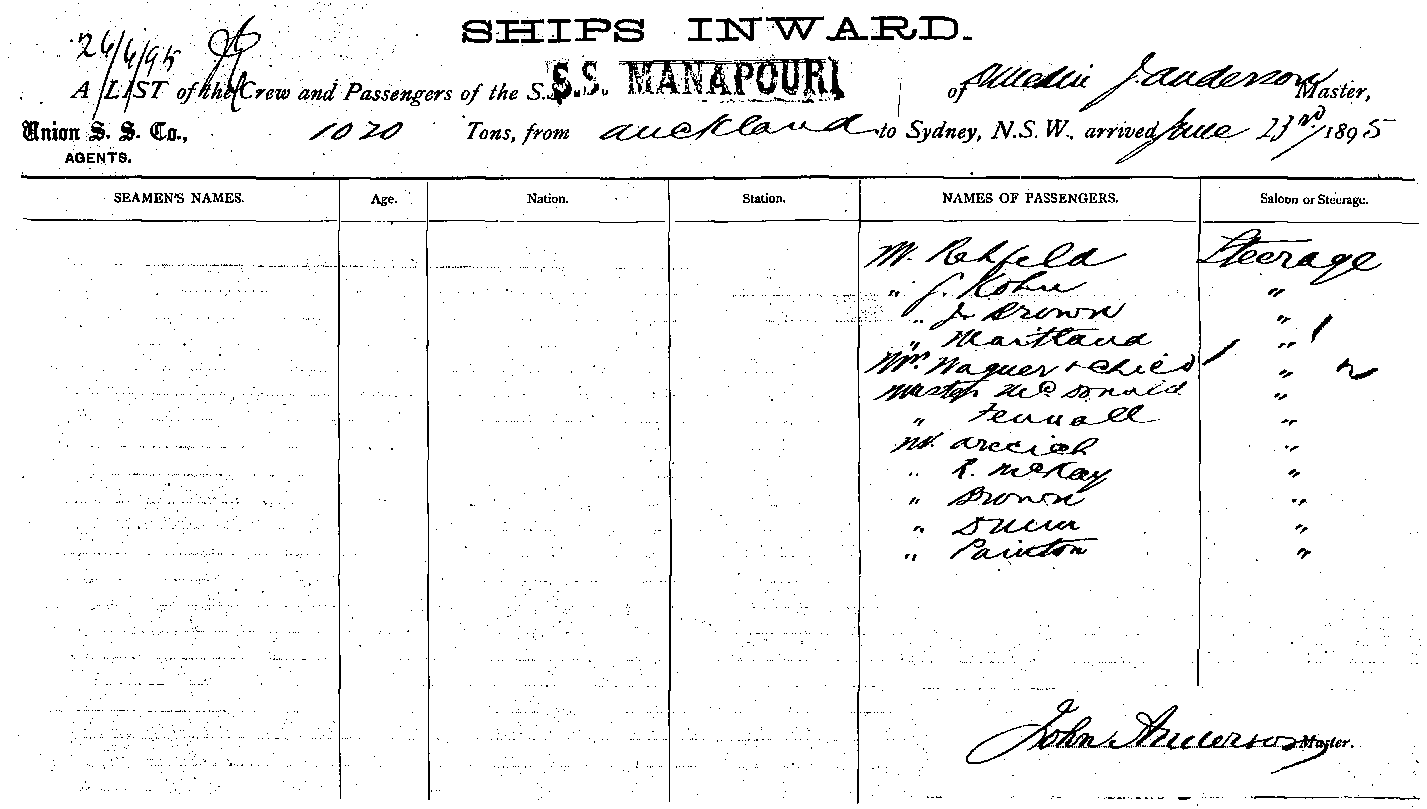 SHIPS INWARD.
24/6/95
A LIST of the Crew and Passengers of the S.S. S.S. MANAPOURI of Dunedin J. Anderson Master,
Union S. S. Co., 1020 Tons, from Auckland to Sydney, N.S.W., arrived June 23rd 1895
AGENTS.
SEAMEN'S NAMES. Age. Nation. Station. NAMES OF PASSENGERS. Saloon or Steerage.
Mr. Rehfeld Steerage
" J. Kohn "
" J. Brown "
" Maitland "
Mrs. Wagner + Child "
Master McDonald "
" "
Mr. "
" R. McKay "
" Brown "
" "
" Painton "
John Anderson Master.